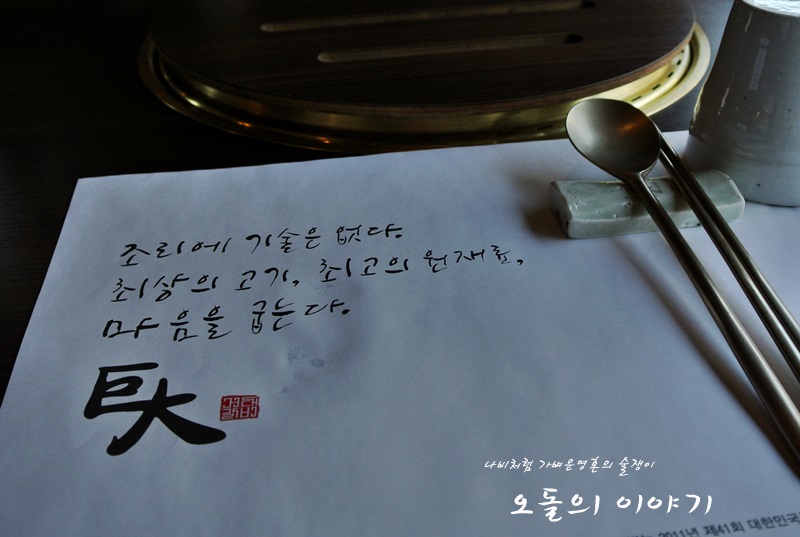 조리에 기술은 없다.
최상의 고기, 최고의 원재료,
마음을 굽는다.
巨大
나비처럼 가벼운영혼의 술쟁이
오돌의 이야기
2011년 제41회 대한민국